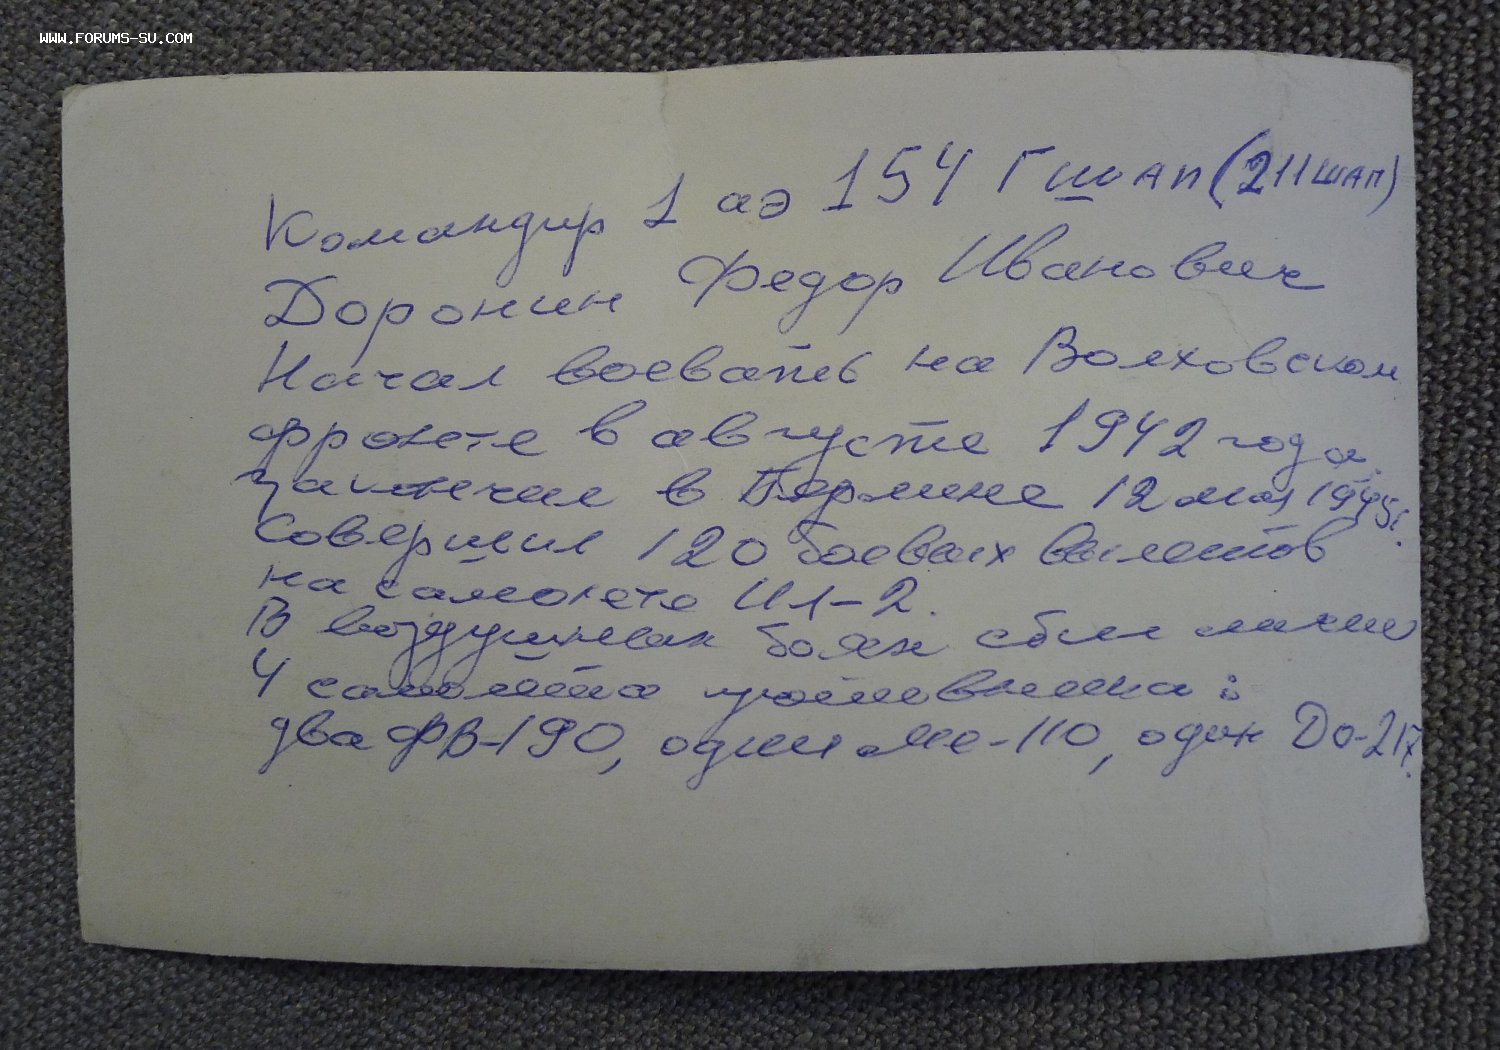 WWW.FORUMS-SU.COM
Командир 1 аэ 154 ГШАП (211 ШАП)
Доронин Федор Иванович
Начал воевать на Волховском
фронте в августе 1942 года.
Закончил в Берлине 12 мая 1945г.
Совершил 120 боевых вылетов
на самолете Ил-2.
В воздушных боях сбил лично
4 самолёта противника:
два ФВ-190, один Ме-110, один До-217.